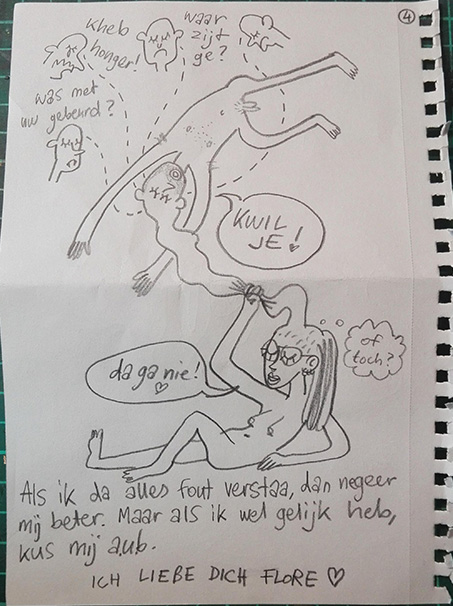 4
kheb
honger!
waar
zijt
ge?
was met
uw gebeurd?
KWIL
JE!
of
toch?
da ga nie!
Als ik da alles fout verstaa, dan negeer
mij beter. Maar als ik wel gelijk heb,
kus mij aub.
ICH LIEBE DICH FLORE